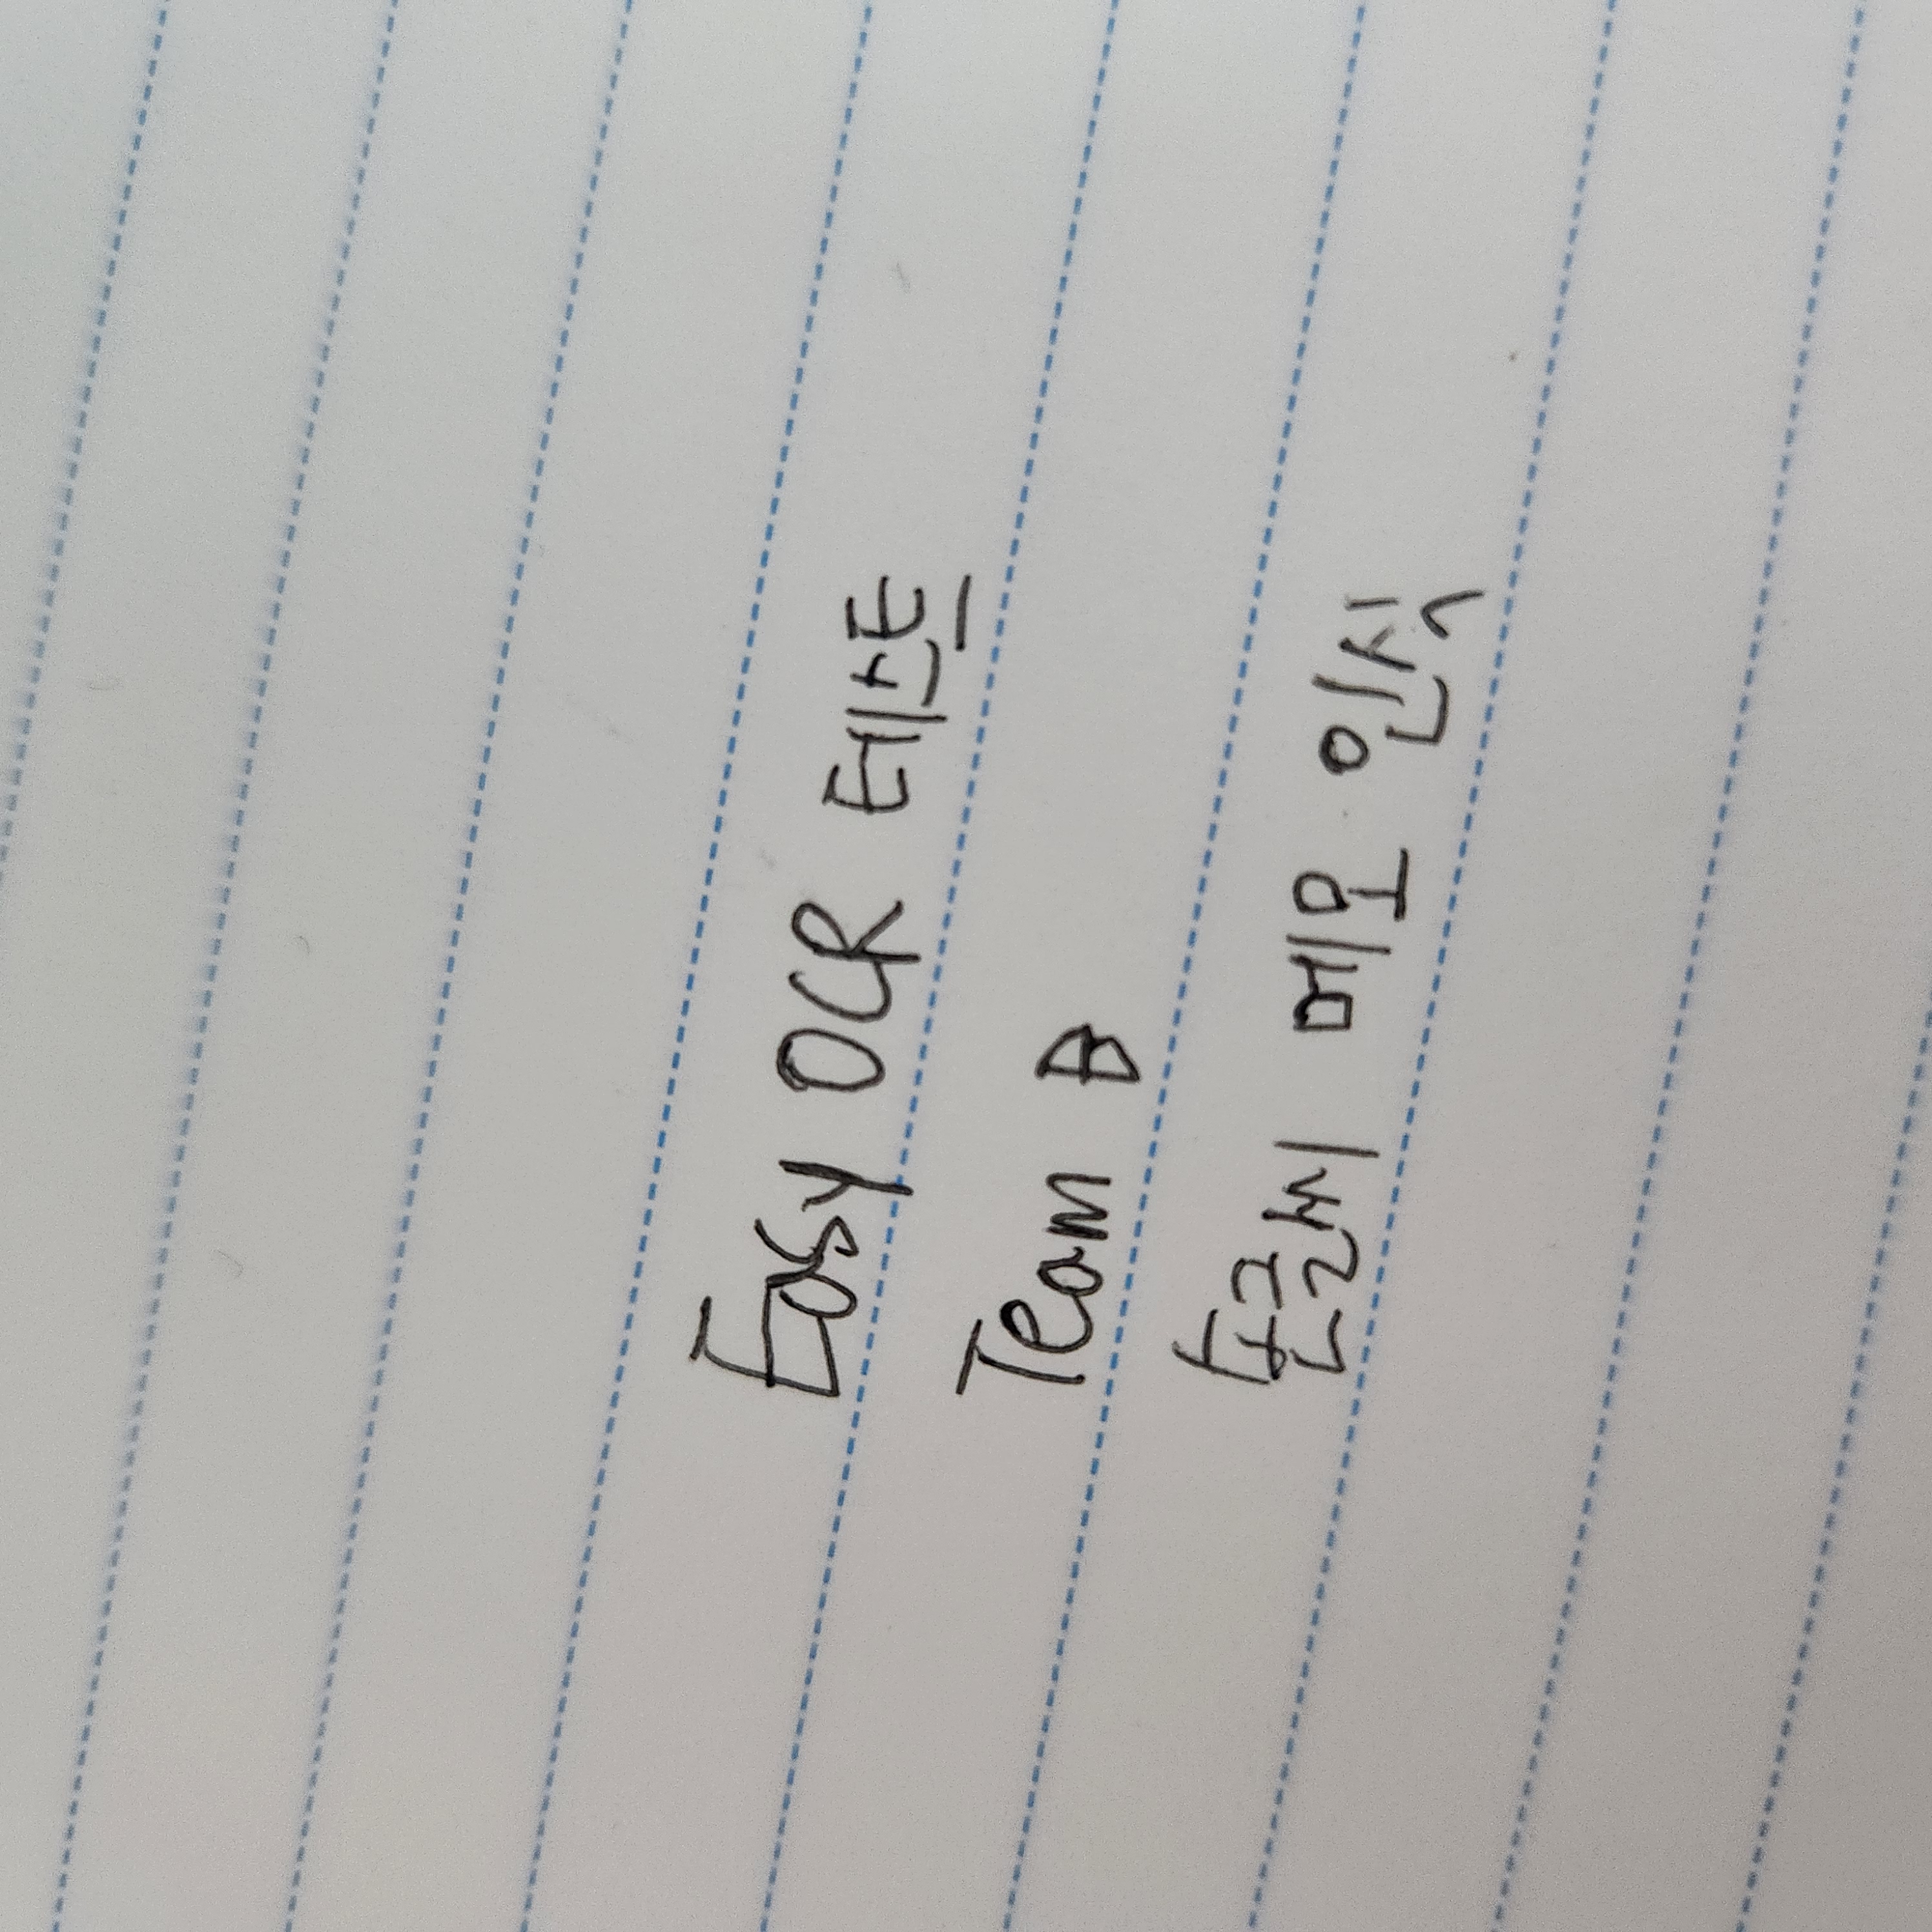 Easy OCR 테스트
Team B
손글씨 메모 인식